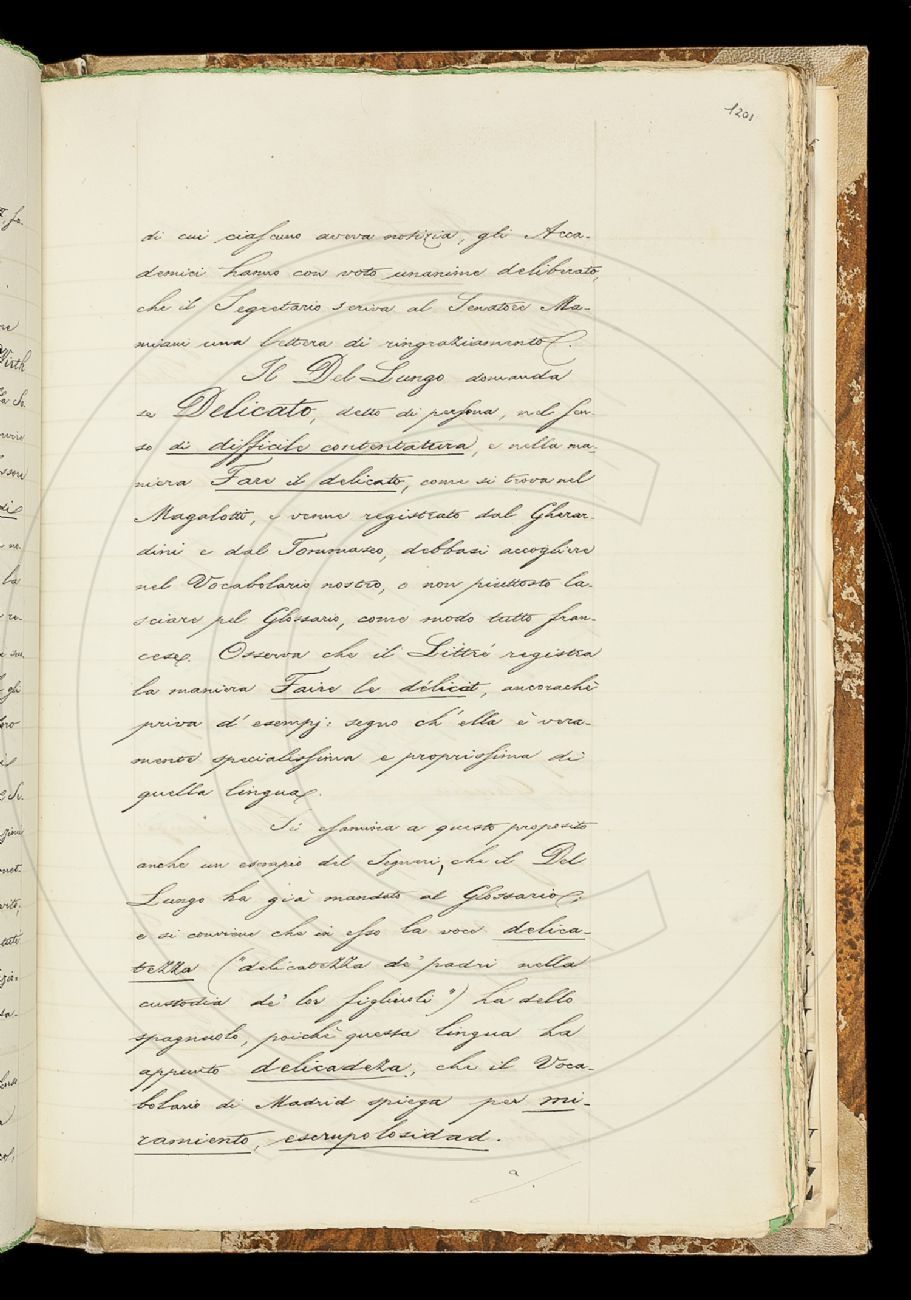 1201
di cui ciascuno aveva notizia, gli Acca-
demici hanno con voto unanime deliberato,
che il Segretario scriva al Senatore Ma-
miani una lettera di ringraziamento.
Il Del Lungo domanda
se Delicato, detto di persona, nel sen-
so di difficile contentatura, e nella ma-
niera Fare il delicato, come si trova nel
Magalotti, e venne registrato dal Gherar-
dini e dal Tommaseo, debbasi accogliere
nel Vocabolario nostro, o non piuttosto la-
sciare pel Glossario, come modo tutto fran-
cese. Osserva che il Littré registra
la maniera Faire le délicat, ancorachè
priva d'esempj: segno ch'ella è vera-
mente specialissima e proprissima di
quella lingua.
Si esamina a questo proposito
anche un esempio del Segneri, che il Del
Lungo ha già mandato al Glossario;
e si conviene che in esso la voce delica-
tezza ("delicatezza de' padri nella
custodia de' lor figliuoli") ha dello
spagnuolo, poichè questa lingua ha
appunto delicadeza, che il Voca-
bolario di Madrid spiega per mi-
ramiento, escrupolosidad.